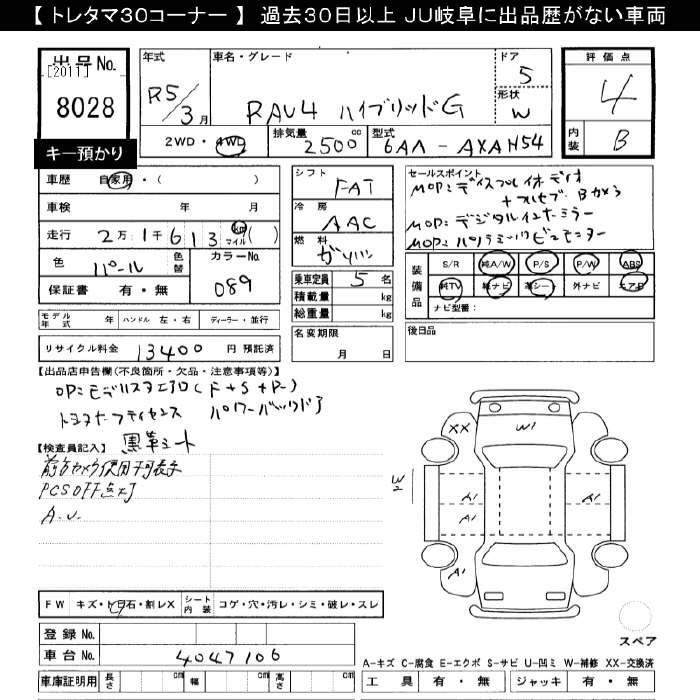 【 トレタマ30コーナー 】 過去30日以上 JU岐阜に出品歴がない車両
出品No. 年式 車名・グレード ドア 評価点
[2011] 5
8028 R5/3月 RAV4 ハイブリッドG 形状 W 4
2WD・4WD 排気量 2500 cc 型式 6AA - AXAH54 内装 B
キー預かり
車歴 自家用・( ) シフト FAT セールスポイント
MOP:ディスプレイオーディオ
車検 年 月 冷房 AAC +フルセグ. Bカメラ
MOP:デジタルインナーミラー
走行 2万1千613 km マイル ( ) 燃料 ガソリン MOP:パノラミックビューモニター
色 パール 色替 カラーNo. 089
乗車定員 5 名 装備品 S/R 純A/W P/S P/W ABS
保証書 有・無 積載量 kg 純TV 純ナビ 革シート 外ナビ エアB
総重量 kg ナビ型番:
モデル年式 年 ハンドル 左・右 ディーラー・並行 名変期限 月 日 後日品
リサイクル料金 13400 円 預託済
【出品店申告欄(不良箇所・欠品・注意事項等)】
OP:モデリスタエアロ(F+S+R)
トヨタチームメイト パワーバックドア
黒革シート
【検査員記入】
前方カメラ使用不可表示
PCS OFF点灯
A.U.
XX W1
W2 A1 A1
A1
A1
FW キズ・ト目石・割レX シート内装 コゲ・穴・汚レ・シミ・破レ・スレ
登録No. スペア
車台No. 4047106
A-キズ C-腐食 E-エクボ S-サビ U-凹ミ W-補修 XX-交換済
車庫証明用 長さ cm 幅 cm 高さ cm 工具 有・無 ジャッキ 有・無